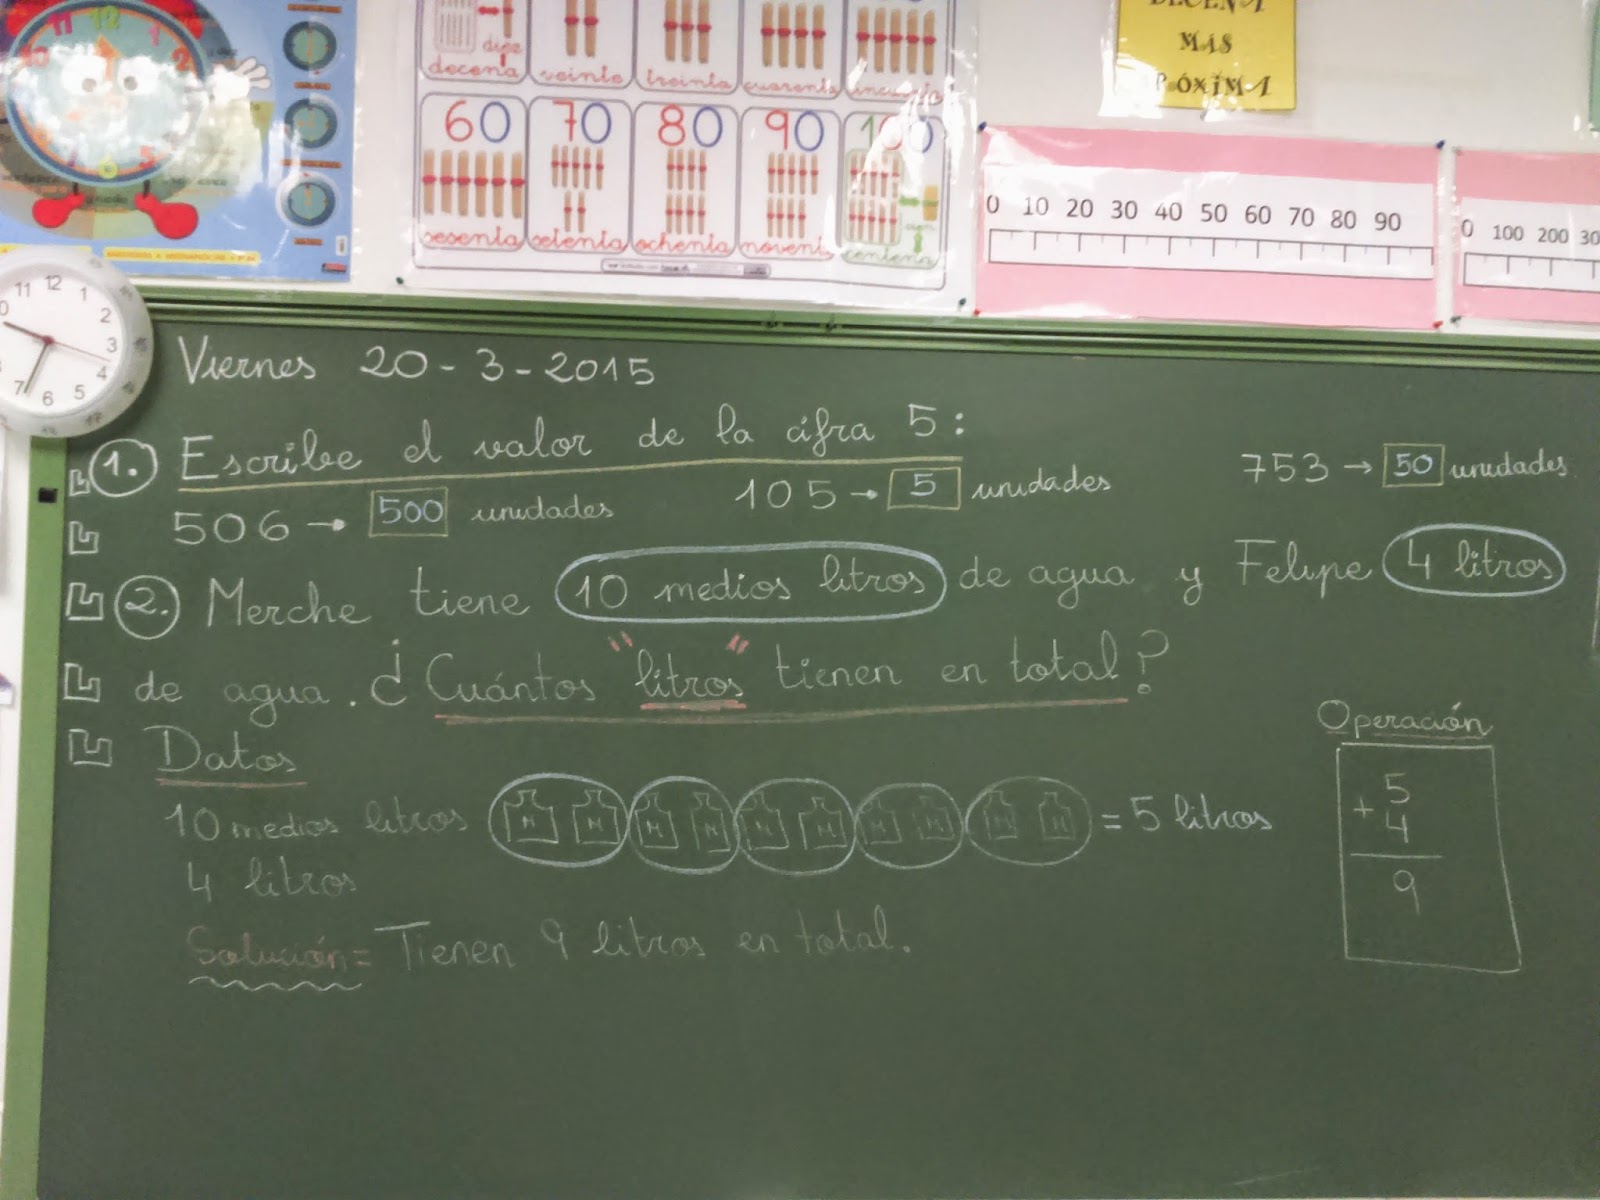 DECENA
MÁS
PRÓXIMA
decena veinte treinta cuarenta cincuenta
60 70 80 90 100
sesenta setenta ochenta noventa centena
0 10 20 30 40 50 60 70 80 90
0 100 200 30
11 12 1
2
3
4
5
6
7
Viernes 20-3-2015
1. Escribe el valor de la cifra 5:
506 → 500 unidades 105 → 5 unidades 753 → 50 unidades
2. Merche tiene 10 medios litros de agua y Felipe 4 litros
de agua. ¿Cuántos "litros" tienen en total?
Datos
10 medios litros M M M M M M M M M M = 5 litros
4 litros
Solución= Tienen 9 litros en total.
Operación
5
+ 4
9